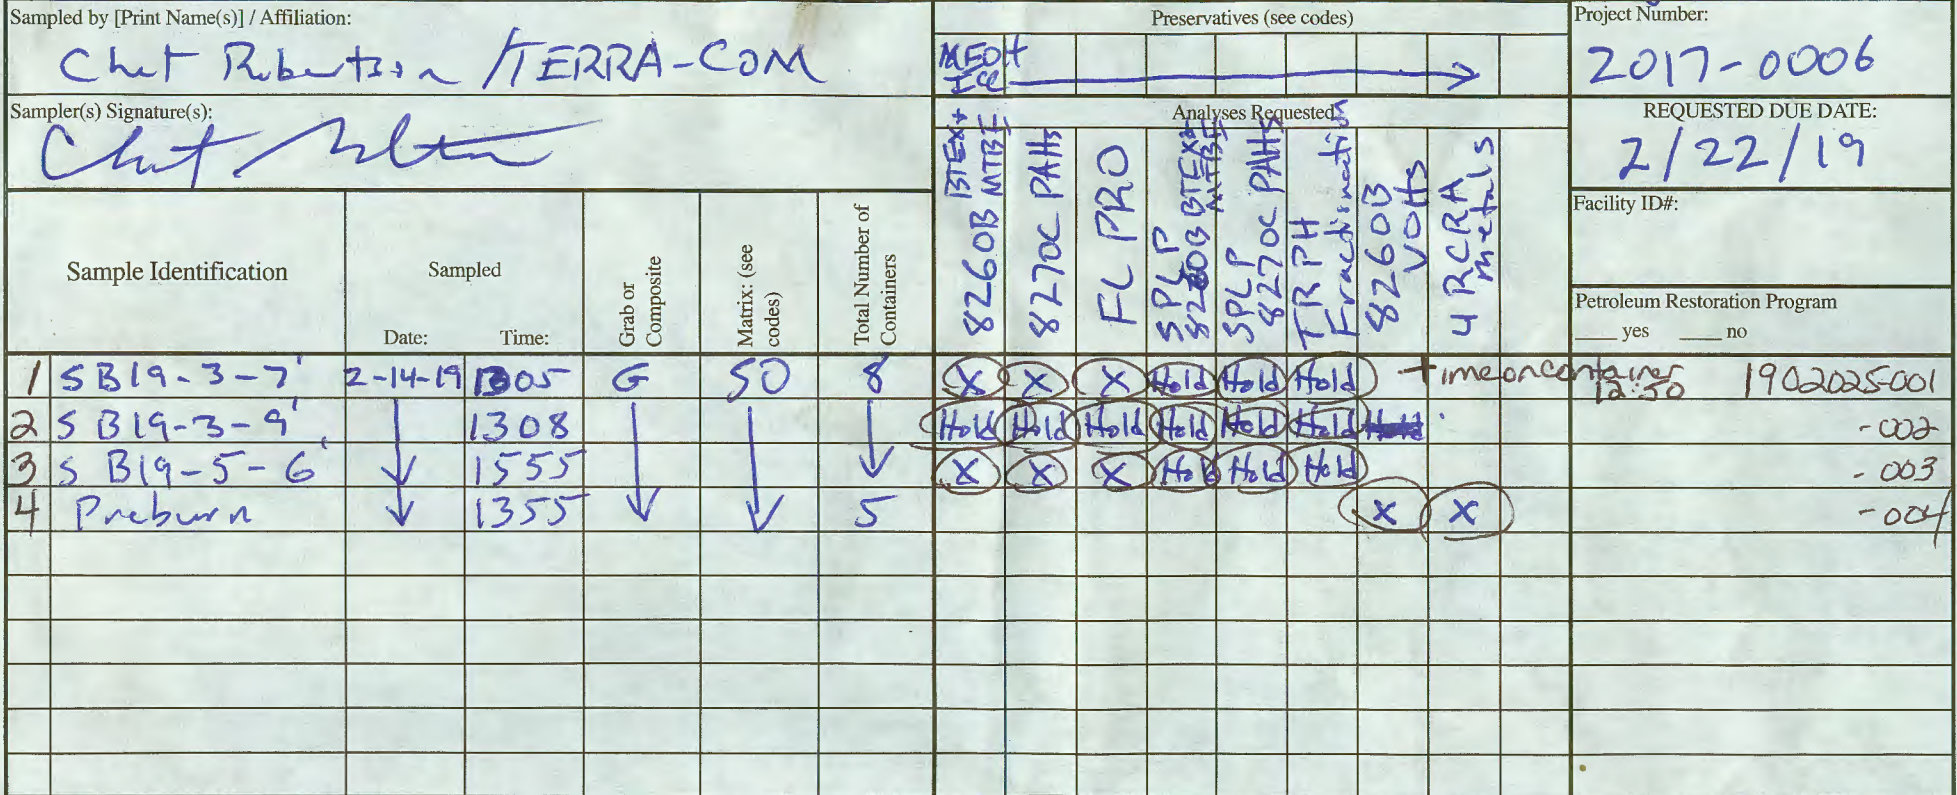 Sampled by [Print Name(s)] / Affiliation:
Chet Robertson /TERRA-COM
Preservatives (see codes)
MEOH
Ice
Project Number:
2017-0006
Sampler(s) Signature(s):
Analyses Requested
REQUESTED DUE DATE:
2/22/19
Facility ID#:
Petroleum Restoration Program
___ yes ___ no
Sample Identification
Sampled
Date: Time:
Grab or
Composite
Matrix: (see
codes)
Total Number of
Containers
8260B BTEX+
MTBE
8270C PAHs
FL PRO
SPLP
8260B BTEX+
MTBE
SPLP
8270C PAHs
TRPH
Fractionation
8260B
VOHs
4 RCRA
metals
1 SB19-3-7' 2-14-19 1305 G SO 8 X X X Hold Hold Hold Time on container 1902025-001
12:50
2 SB19-3-9' 1308 Hold Hold Hold Hold Hold Hold -002
3 SB19-5-6' 1555 X X X Hold Hold Hold -003
4 Preburn 1355 5 X X -004